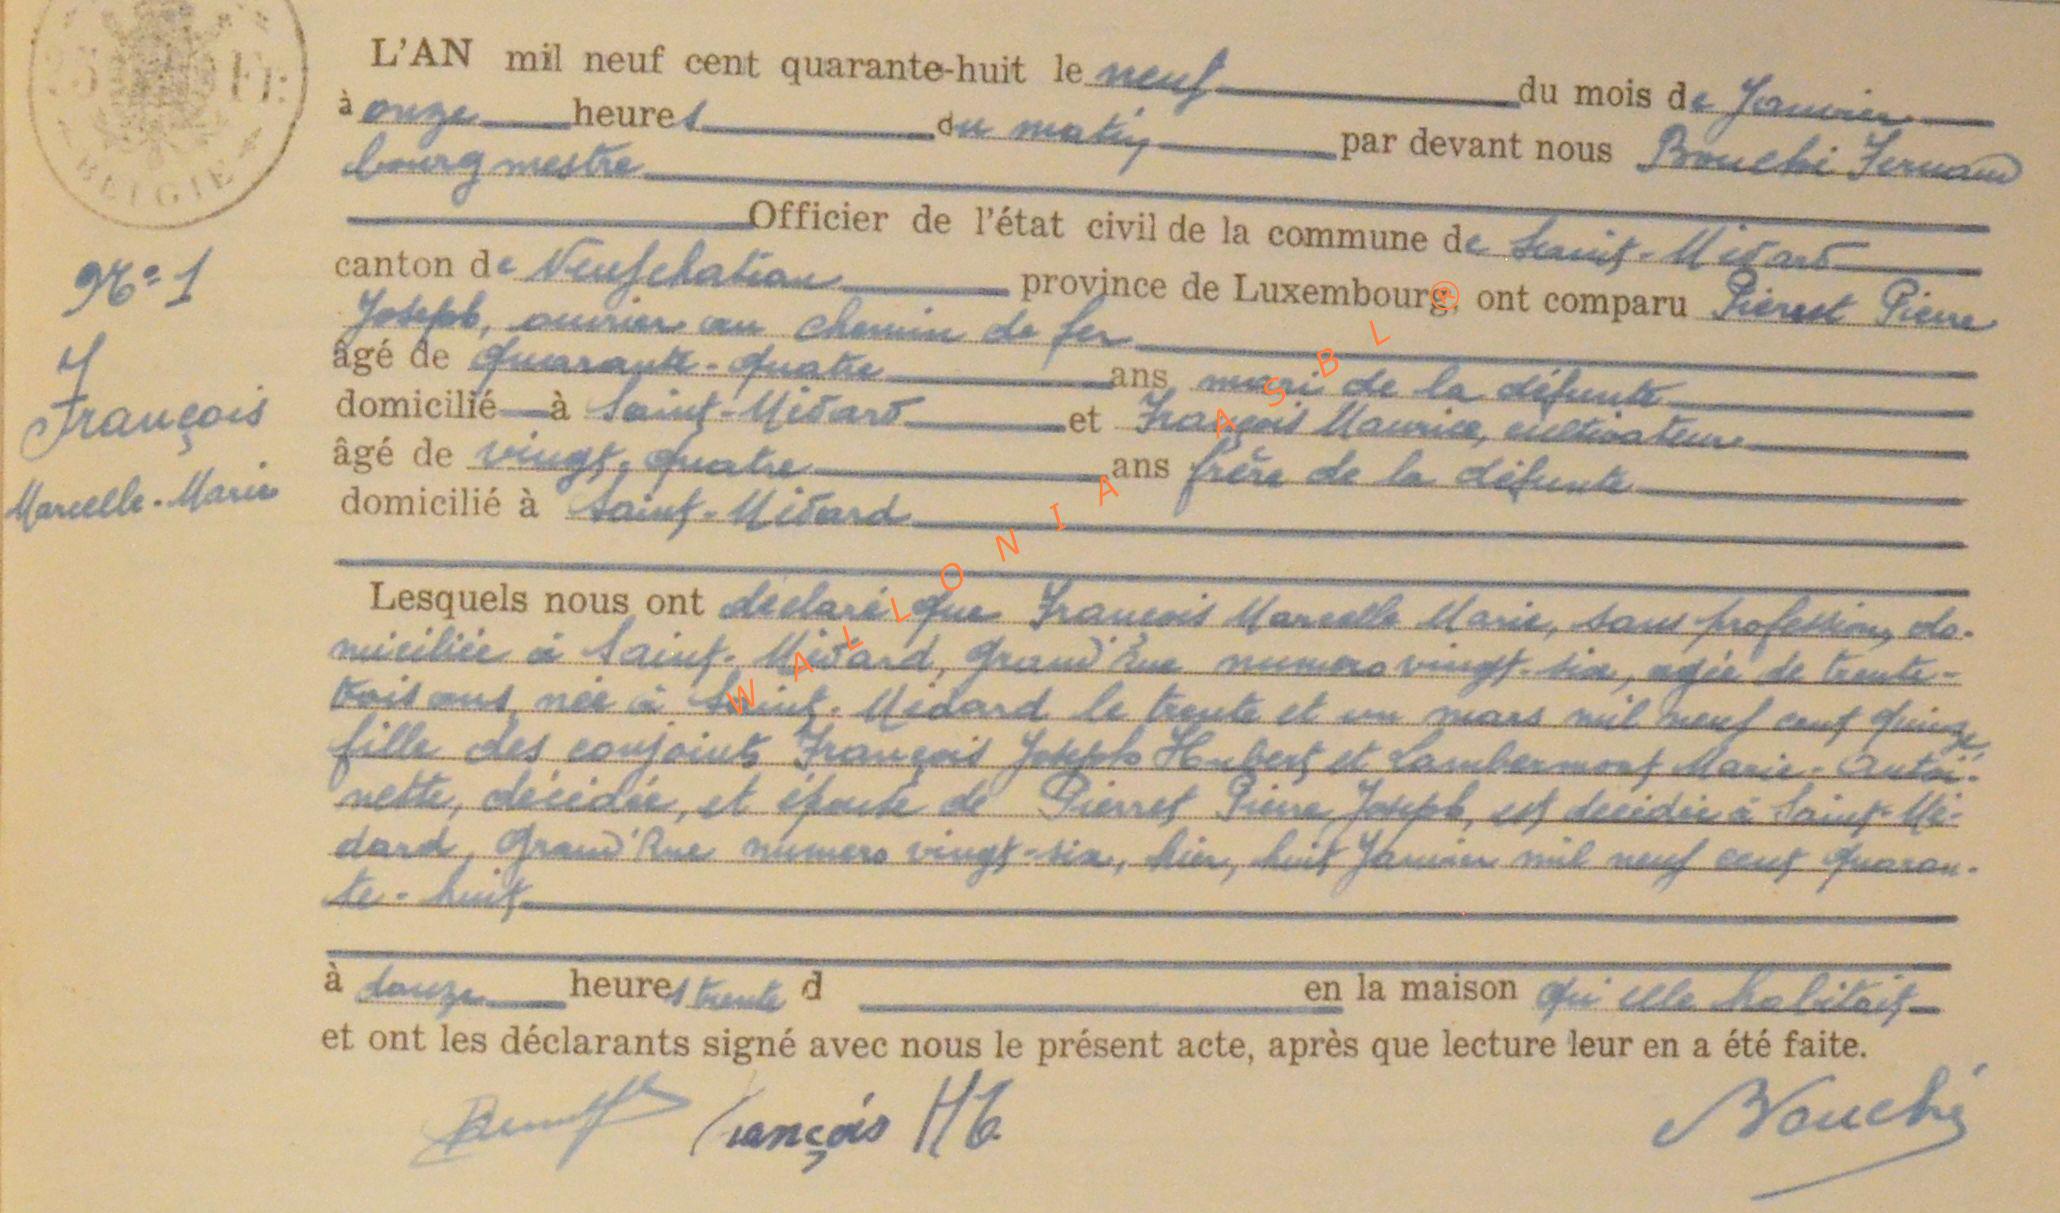 BELGIE
L'AN mil neuf cent quarante-huit le neuf du mois de Janvier
à onze heures du matin par devant nous Bouché Fernand
bourgmestre
Officier de l'état civil de la commune de Saint-Médard
canton de Neufchateau province de Luxembourg, ont comparu Pierret Pierre
Joseph, ouvrier au chemin de fer
âgé de quarante-quatre ans mari de la défunte
domicilié à Saint-Médard et François Maurice, cultivateur
âgé de vingt-quatre ans frère de la défunte
domicilié à Saint-Médard
N° 1
François
Marcelle-Marie
Lesquels nous ont déclaré que François Marcelle Marie, sans profession, do-
miciliée à Saint-Médard, Grand'Rue numero vingt-six, agée de trente-
trois ans, née à Saint-Médard le trente et un mars mil neuf cent quinze,
fille des conjoints François Joseph Hubert et Lambermont Marie-Antoi-
nette, décédée, et épouse de Pierret Pierre Joseph, est décédée à Saint-Mé-
dard, Grand'Rue numero vingt-six, hier, huit Janvier mil neuf cent quaran-
te-huit
à douze heures trente d en la maison qu'elle habitait
et ont les déclarants signé avec nous le présent acte, après que lecture leur en a été faite.
François Bouché
WALLONIA ASBL ®